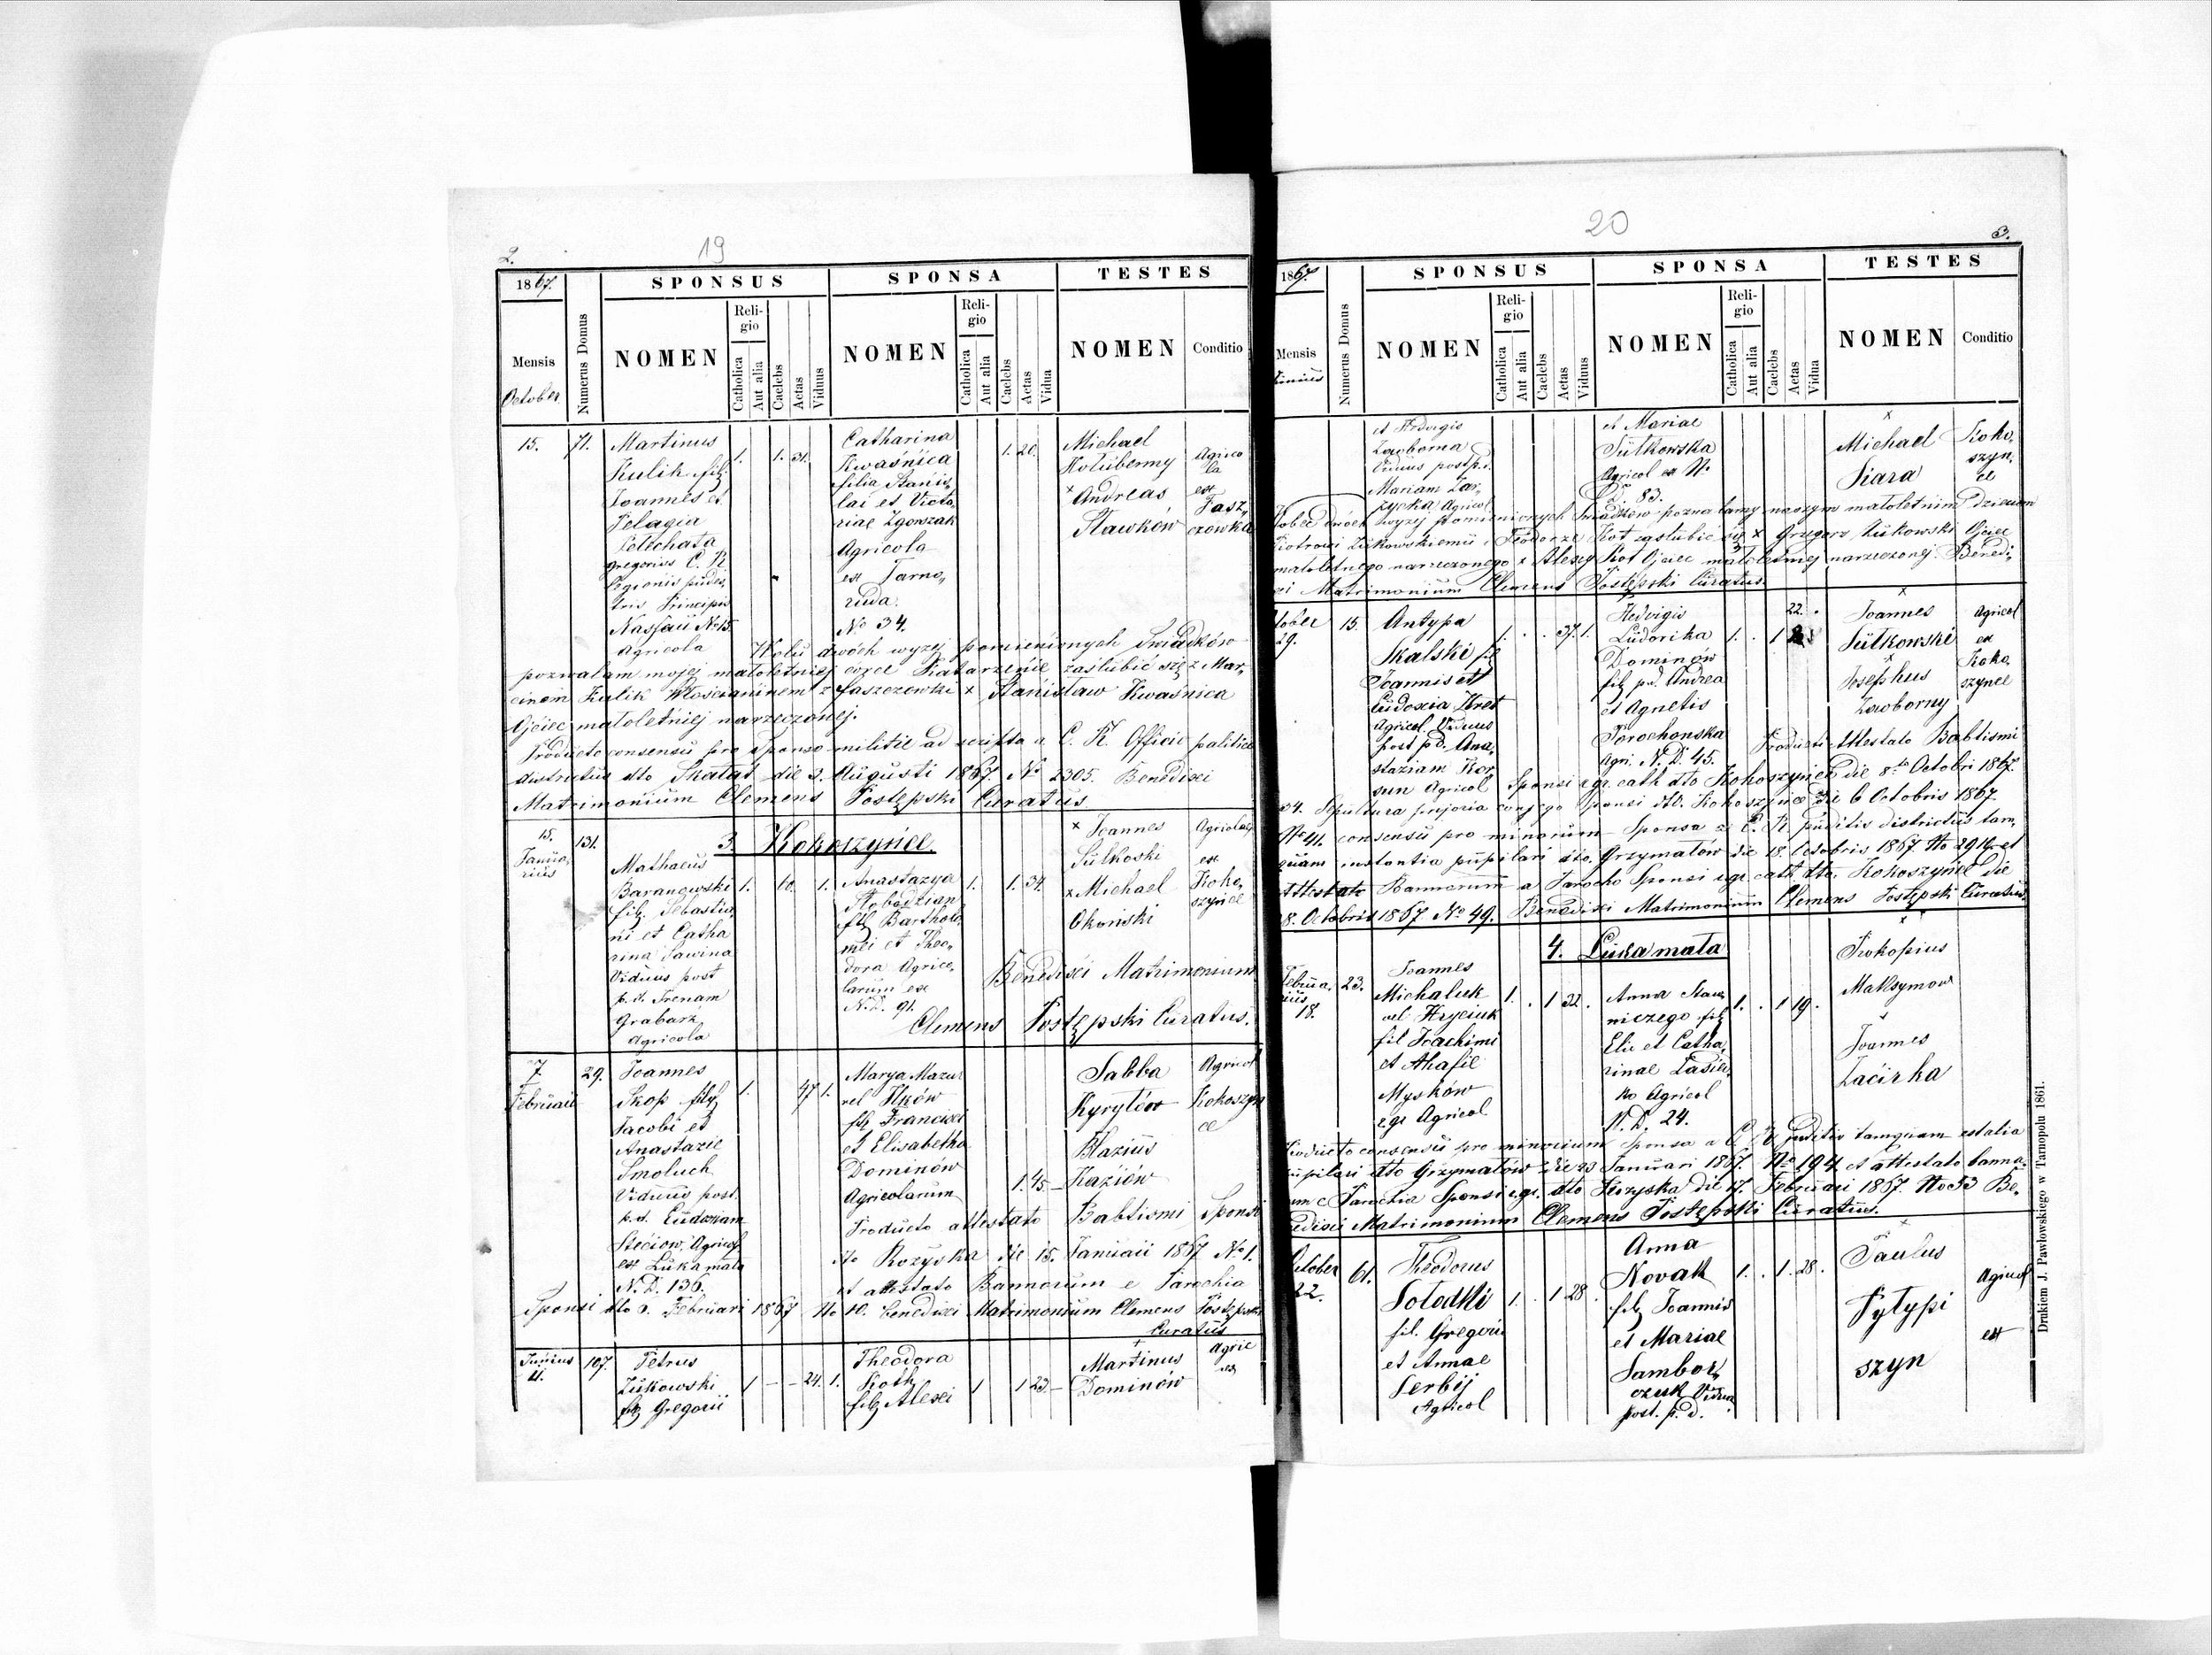 2.
19
1867.
SPONSUS
SPONSA
TESTES
Mensis
October
Numerus Domus
NOMEN
Religio
Catholica
Aut alia
Caelebs
Aetas
Viduus
NOMEN
Religio
Catholica
Aut alia
Caelebs
Aetas
Vidua
NOMEN
Conditio
15. 71.
Martinus
Kulik filz
Joannes et
Pelagia
Gregorius C. R.
Legionis pedes
tris Principis
Nassau No 15.
Agricola
1. 1. 31.
Catharina
Kwaśnica
filia Stanis
lai et Victo
riae Zgorszak
Agricola
ex Tarno
ruda.
No 34.
1. 20.
Michael
Hołubenny
x Andreas
Stawków
Agrico
la
ex
Fasz
czówka
Wobec dwóch wyzej pomienionych Świadków
pozwalam mojej małoletniej córce Katarzynie zaślubić się z Mar
cinem Kulik Włościaninem z Faszczowki x Stanisław Kwaśnica
Ojciec małoletniej narzeczonej.
Producto consensu pro Sponso militie ad scripto a C. K. Officio politico
districtus dto Skałat die 3. Augusti 1867 No 2305. Benedixi
Matrimonium Clemens Postępski Curatus
3. Kokoszyńce
15.
Janua
rius
131.
Mathaeus
Baranowski
filz. Sebastia
ni et Catha
rina Sawina
Viduus post
p. d. Irenam
Grabarz
Agricola
1. 60. 1.
Anastazya
Słobodzian
filz Bartholo
mei et Theo
dora Agrico
larum ex
N. D. 91.
1. 1. 34.
x Joannes
Sutkoski
x Michael
Okoński
Agricolae
ex
Koko
szyńce
Benedixi Matrimonium
Clemens Postępski Curatus.
7.
Februarii
29.
Joannes
Skop filz
Jacobi et
Anastazie
Smoluch
Viduus post
p. d. Eudoxiam
Stećiow. Agricol
ex Łuka mała
N. D. 136.
1. 47 1.
Marya Mazur
vel Ilków
filz Francisci
et Elisabetha
Dominów
Agricolarum
1. 45
Sabba
Kyryłów
Blazius
Kaziów
Agricol
Kokoszyń
ce
Producto attestato Babtismi Sponsi
dto Rozyska die 15. Januaii 1867 No 1.
et attestato Bannorum e Parochia
Sponsi dto 3. Februari 1867 No 10. Benedixi Matrimonium Clemens Postępski
Curatus
Junius
11.
107.
Petrus
Żukowski
filz Gregorii
1 - - 24. 1.
Theodora
Koth
filz Alexi
1 1 23.
Martinus
Dominów
Agric
ex
20
3.
1867.
SPONSUS
SPONSA
TESTES
Mensis
Junius
Numerus Domus
NOMEN
Religio
Catholica
Aut alia
Caelebs
Aetas
Viduus
NOMEN
Religio
Catholica
Aut alia
Caelebs
Aetas
Vidua
NOMEN
Conditio
et Hedvigis
Zaoborna
Viduus post p. d.
Mariam Zar
Agricol
et Mariae
Sutkowska
Agricol ex N.
D. 83.
x
Michael
Siara
Koko
szyn
ce
obec dwóch wyzej pomienionych Swiadków pozwalamy naszym małoletnim Dzieciom
Piotrowi Żukowskiemu i Teodorze Kot zaslubić się x Grzegorz Żukowski Ojciec
małoletnego narzeczonego x Alexy Kot Ojciec małoletniej narzeczonej. Benedi
xi Matrimonium Clemens Postępski Curatus.
tober
29.
15.
Antypa
Skalski fil
Joannis et
Eudoxia Kret
Agricol. Viduus
post p. d. Ana
staziam Kor
sun Agricol
1. . . 37. 1.
Hedvigis
Ludorika
Dominów
filz p. d. Andrea
et Agnetis
Porochonska
Agri. N. D. 45.
1. . 1
22.
x
Joannes
Sutkowski
x
Josephus
Zaoborny
Agricol
ex
Koko
szynce
Producto Attestato Babtismi
Sponsi egr. cath dto Kokoszyńce die 8to Octobri 1867.
Sepultura prioria conjugo Sponsi dto. Kokoszyńce die 6 Octobris 1867.
No 41. consensu pro minorum Sponsa a C. K. Juditis districtus tam
quam instantia pupilari dto. Grzymałów die 18. Octobris 1867. No 2916 et
Attestato Bannorum a Parocho Sponsi egr. cath. dto. Kokoszyńce die
8. Octobris 1867 No 49. Benedixi Matrimonium Clemens Postępski Curatus
4. Łuka mała
Februa
rius
18.
23.
Joannes
Michaluk
vel Hryciuk
fil Joachimi
et Ahafie
Myśków
egr Agricol
1. . 1 32.
Anna Staw
niczego filz
Elie et Catha
rinae Łasia
ko Agricol
N. D. 24.
1. . 1 19.
x
Prokopius
Maksymow
x
Joannes
Zacirka
Producto consensu pro minorium Sponsa a C. K. Juditis tamquam
pupilari dto Grzymałów die 23 Januari 1867. No 194 et attestato banno
rum e Parochia Sponsi egr. dto Rozyska die 17. Februari 1867. No 53 Be
nedixi Matrimonium Clemens Postępski Curatus.
October
22.
61.
Theodorus
Sołodki
fil. Gregorii
et Annae
Serbij
Agricol
1. . 1 28.
Anna
Novak
filz Joannis
et Mariae
Sambor
czuk Vidua
post. p. d.
1. . 1. 28.
x
Paulus
Pyłypi
szyn
Agricol
ex
Drukiem J. Pawłowskiego w Tarnopolu 1861.